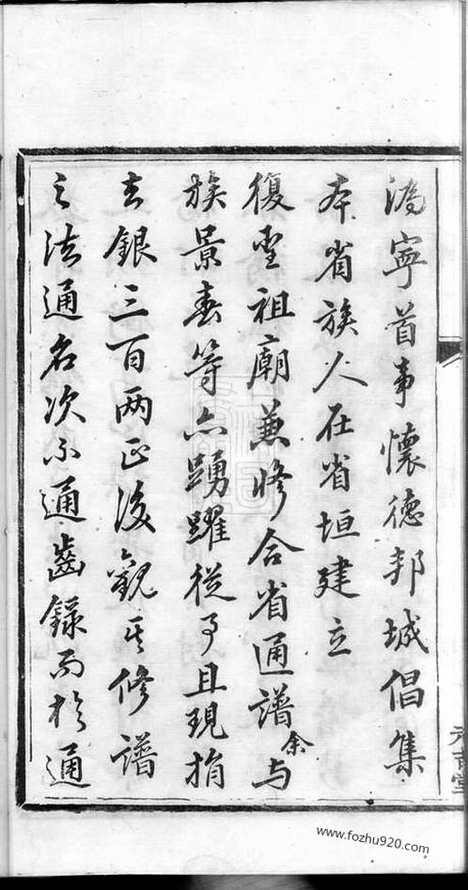 溈寧首事懷德邦城倡集
本省族人在省垣建立
復聖祖廟兼修合省通譜余与
族景春等亦踴躍從事且現捐
去銀三百两正後觀其修譜
之法通名次不通齒錄而於通
www.fozhu920.com